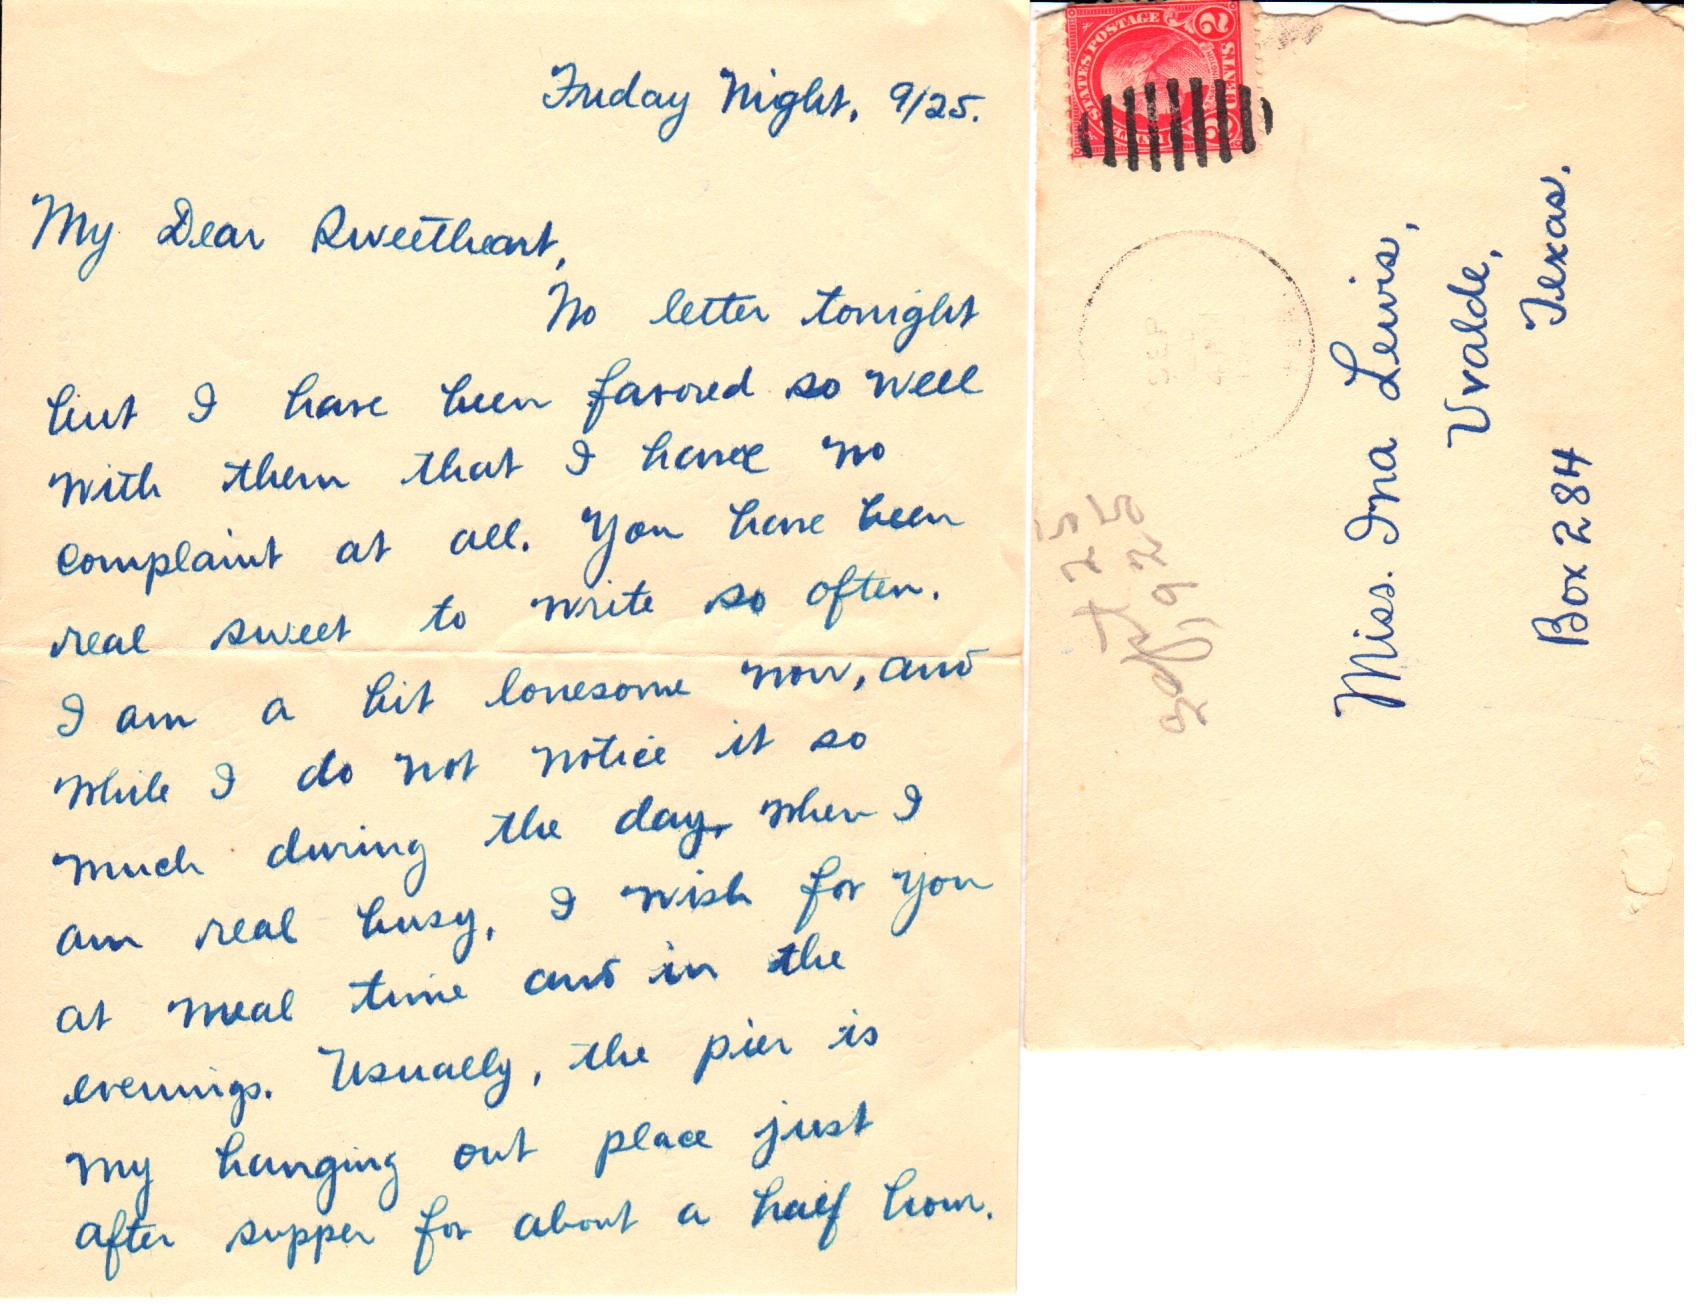 Friday Night, 9/25.
My Dear Sweetheart,
No letter tonight
but I have been favored so well
with them that I have no
complaint at all. You have been
real sweet to write so often.
I am a bit lonesome now, and
while I do not notice it so
much during the day, when I
am real busy, I wish for you
at meal time and in the
evenings. Usually, the pier is
my hanging out place just
after supper for about a half hour.
STATES POSTAGE
2 CENTS 2
SEP
Sept 25
1925
Miss. Ina Lewis,
Uvalde,
Texas.
Box 284